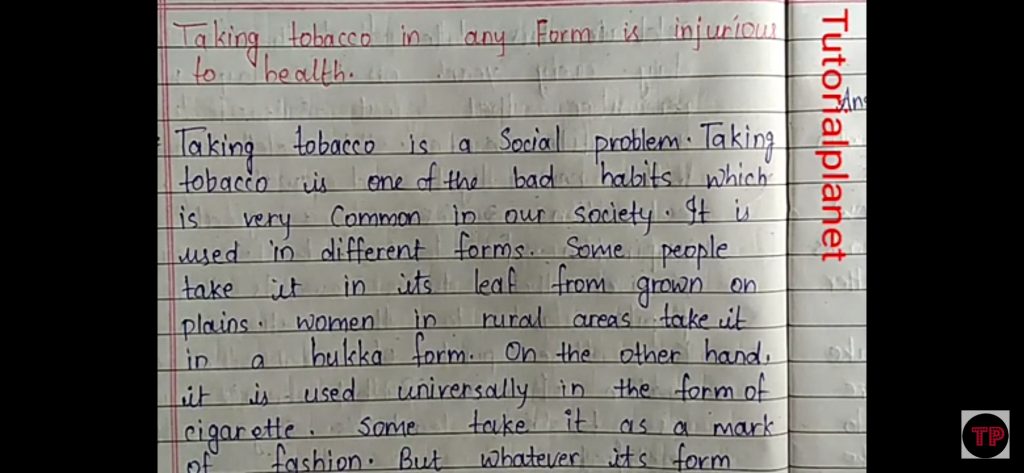 Taking tobacco in any Form is injurious
to health.
Taking tobacco is a Social problem. Taking
tobacco is one of the bad habits which
is very Common in our society. It is
used in different forms. Some people
take it in its leaf from grown on
plains. women in rural areas take it
in a hukka form. On the other hand,
it is used universally in the form of
cigarette. Some take it as a mark
of fashion. But whatever its form
Tutorialplanet
Ans
TP